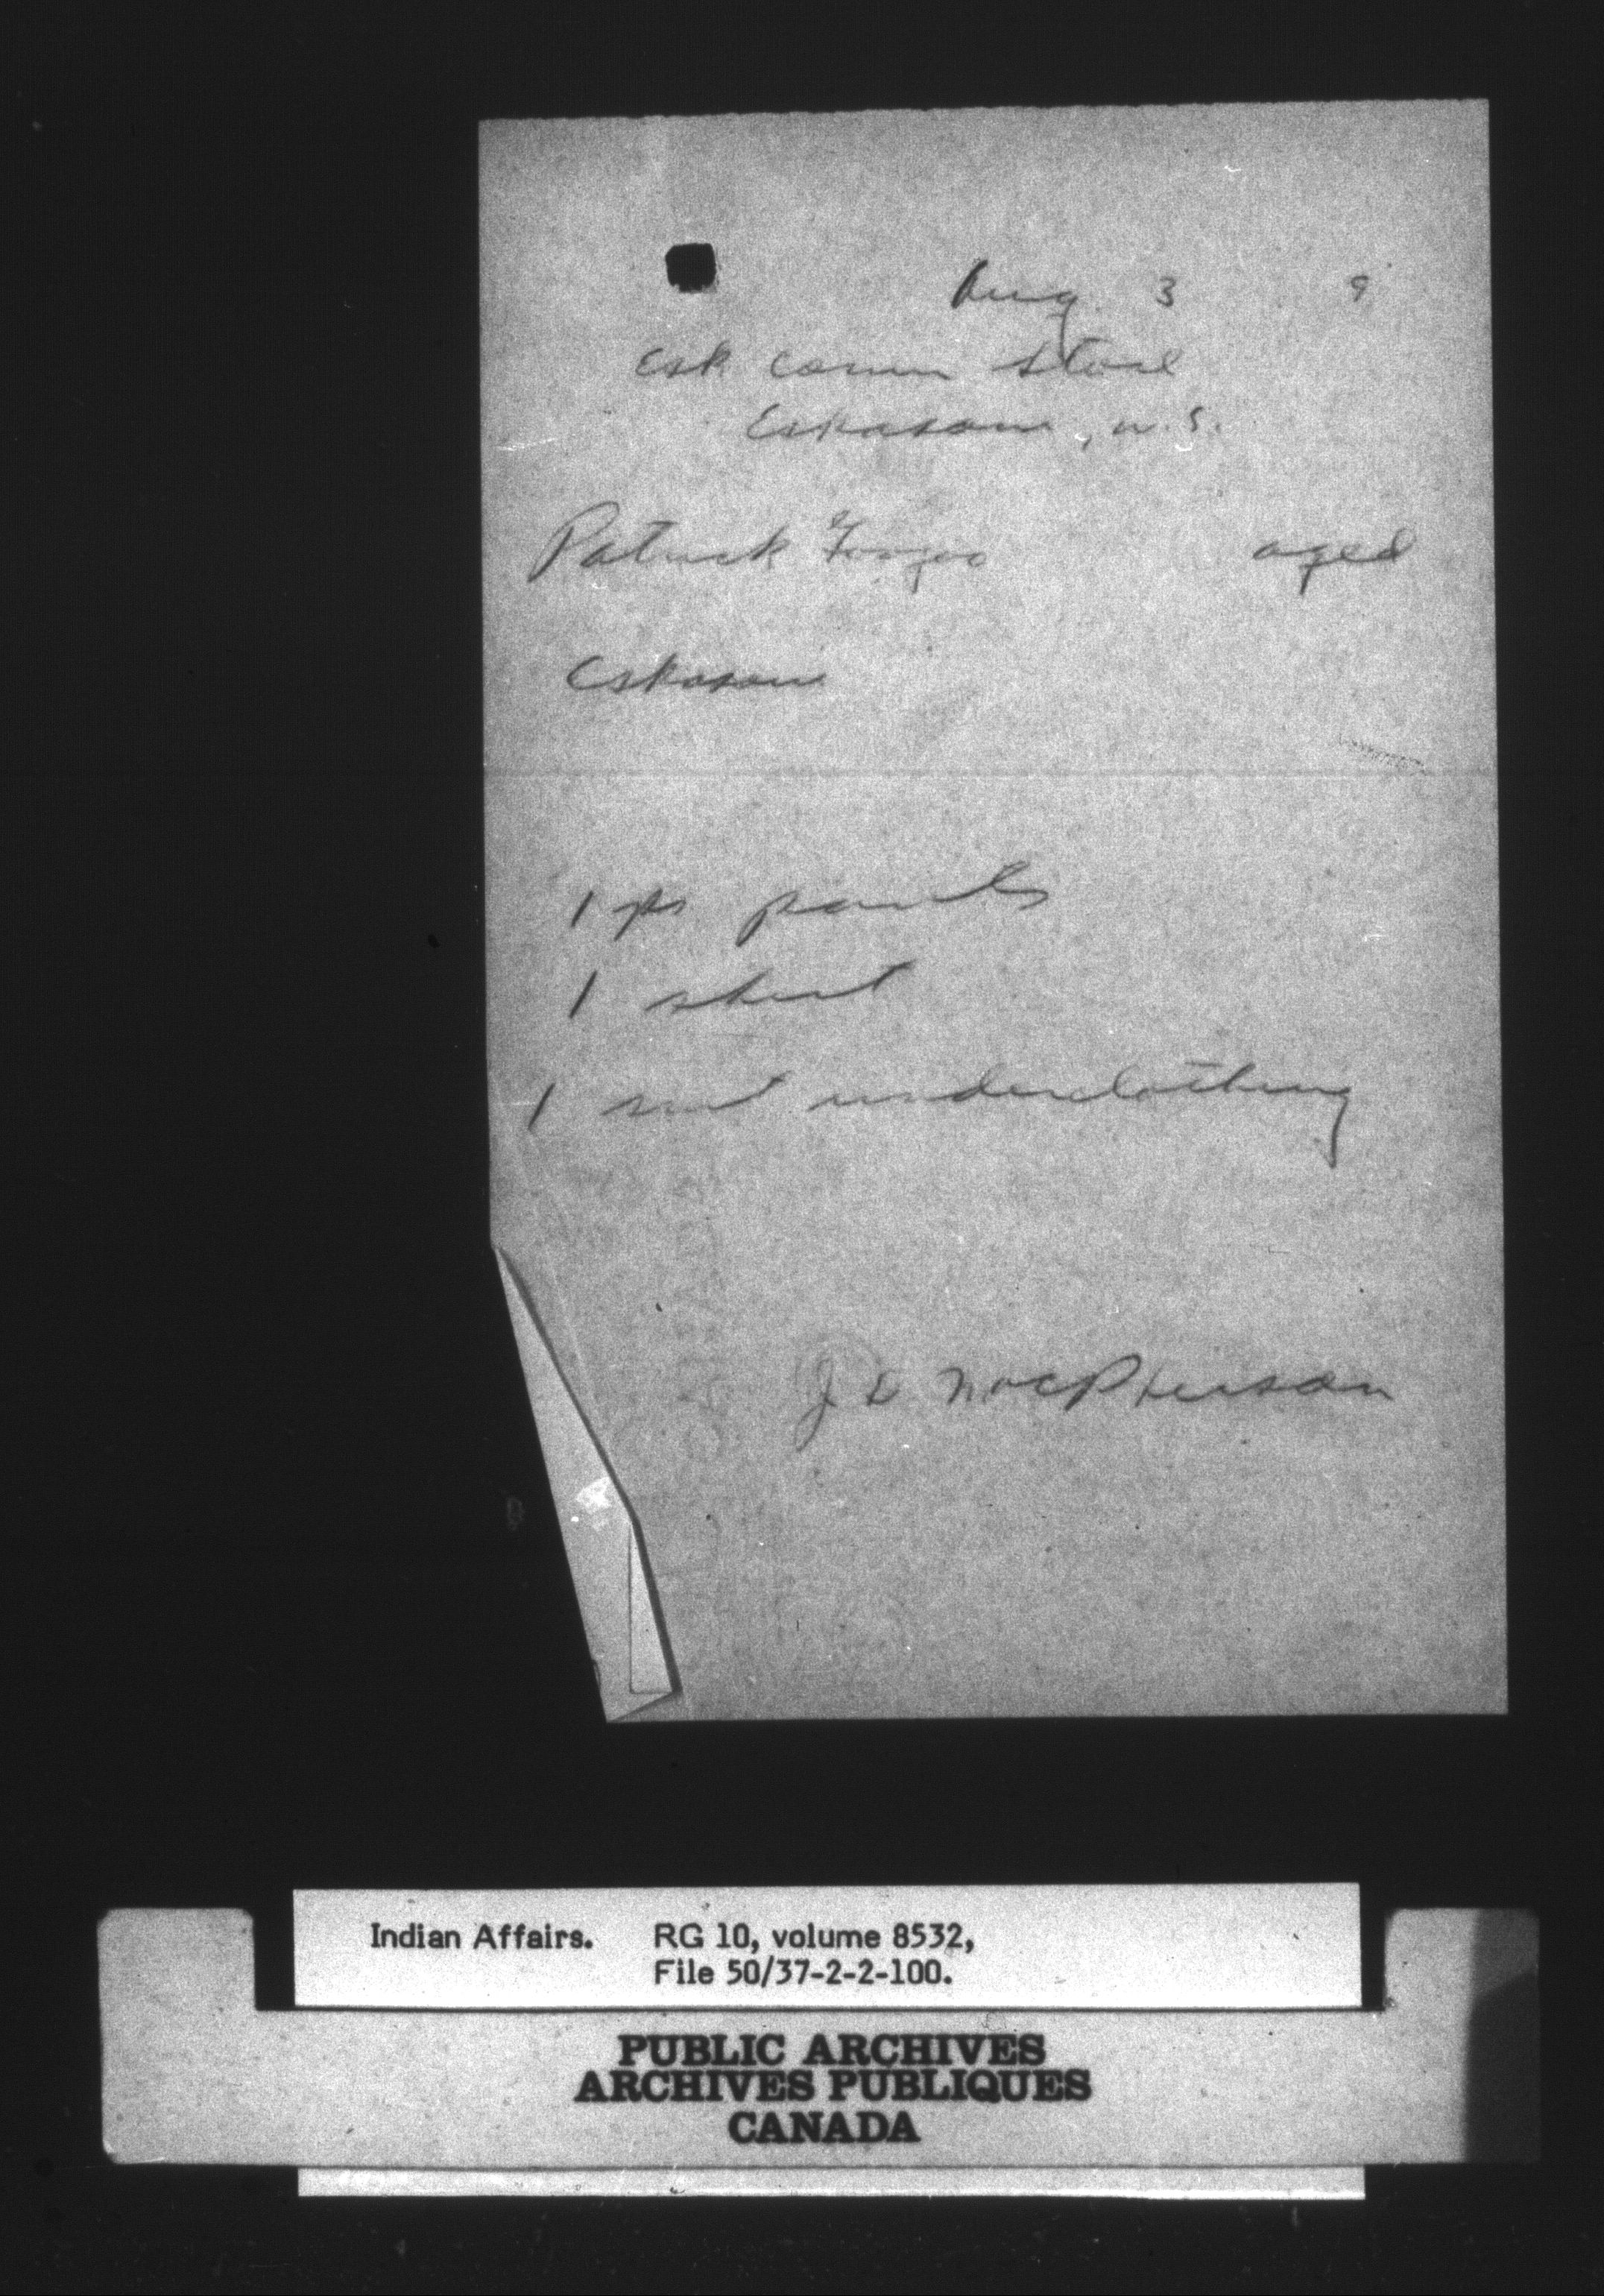 Aug. 3 9
Esk Comm Store
Eskasoni, N.S.
Patrick aged
Eskasoni
1 pr pants
1 shirt
1 suit underclothing
J D MacPherson
Indian Affairs. RG 10, volume 8532,
File 50/37-2-2-100.
PUBLIC ARCHIVES
ARCHIVES PUBLIQUES
CANADA